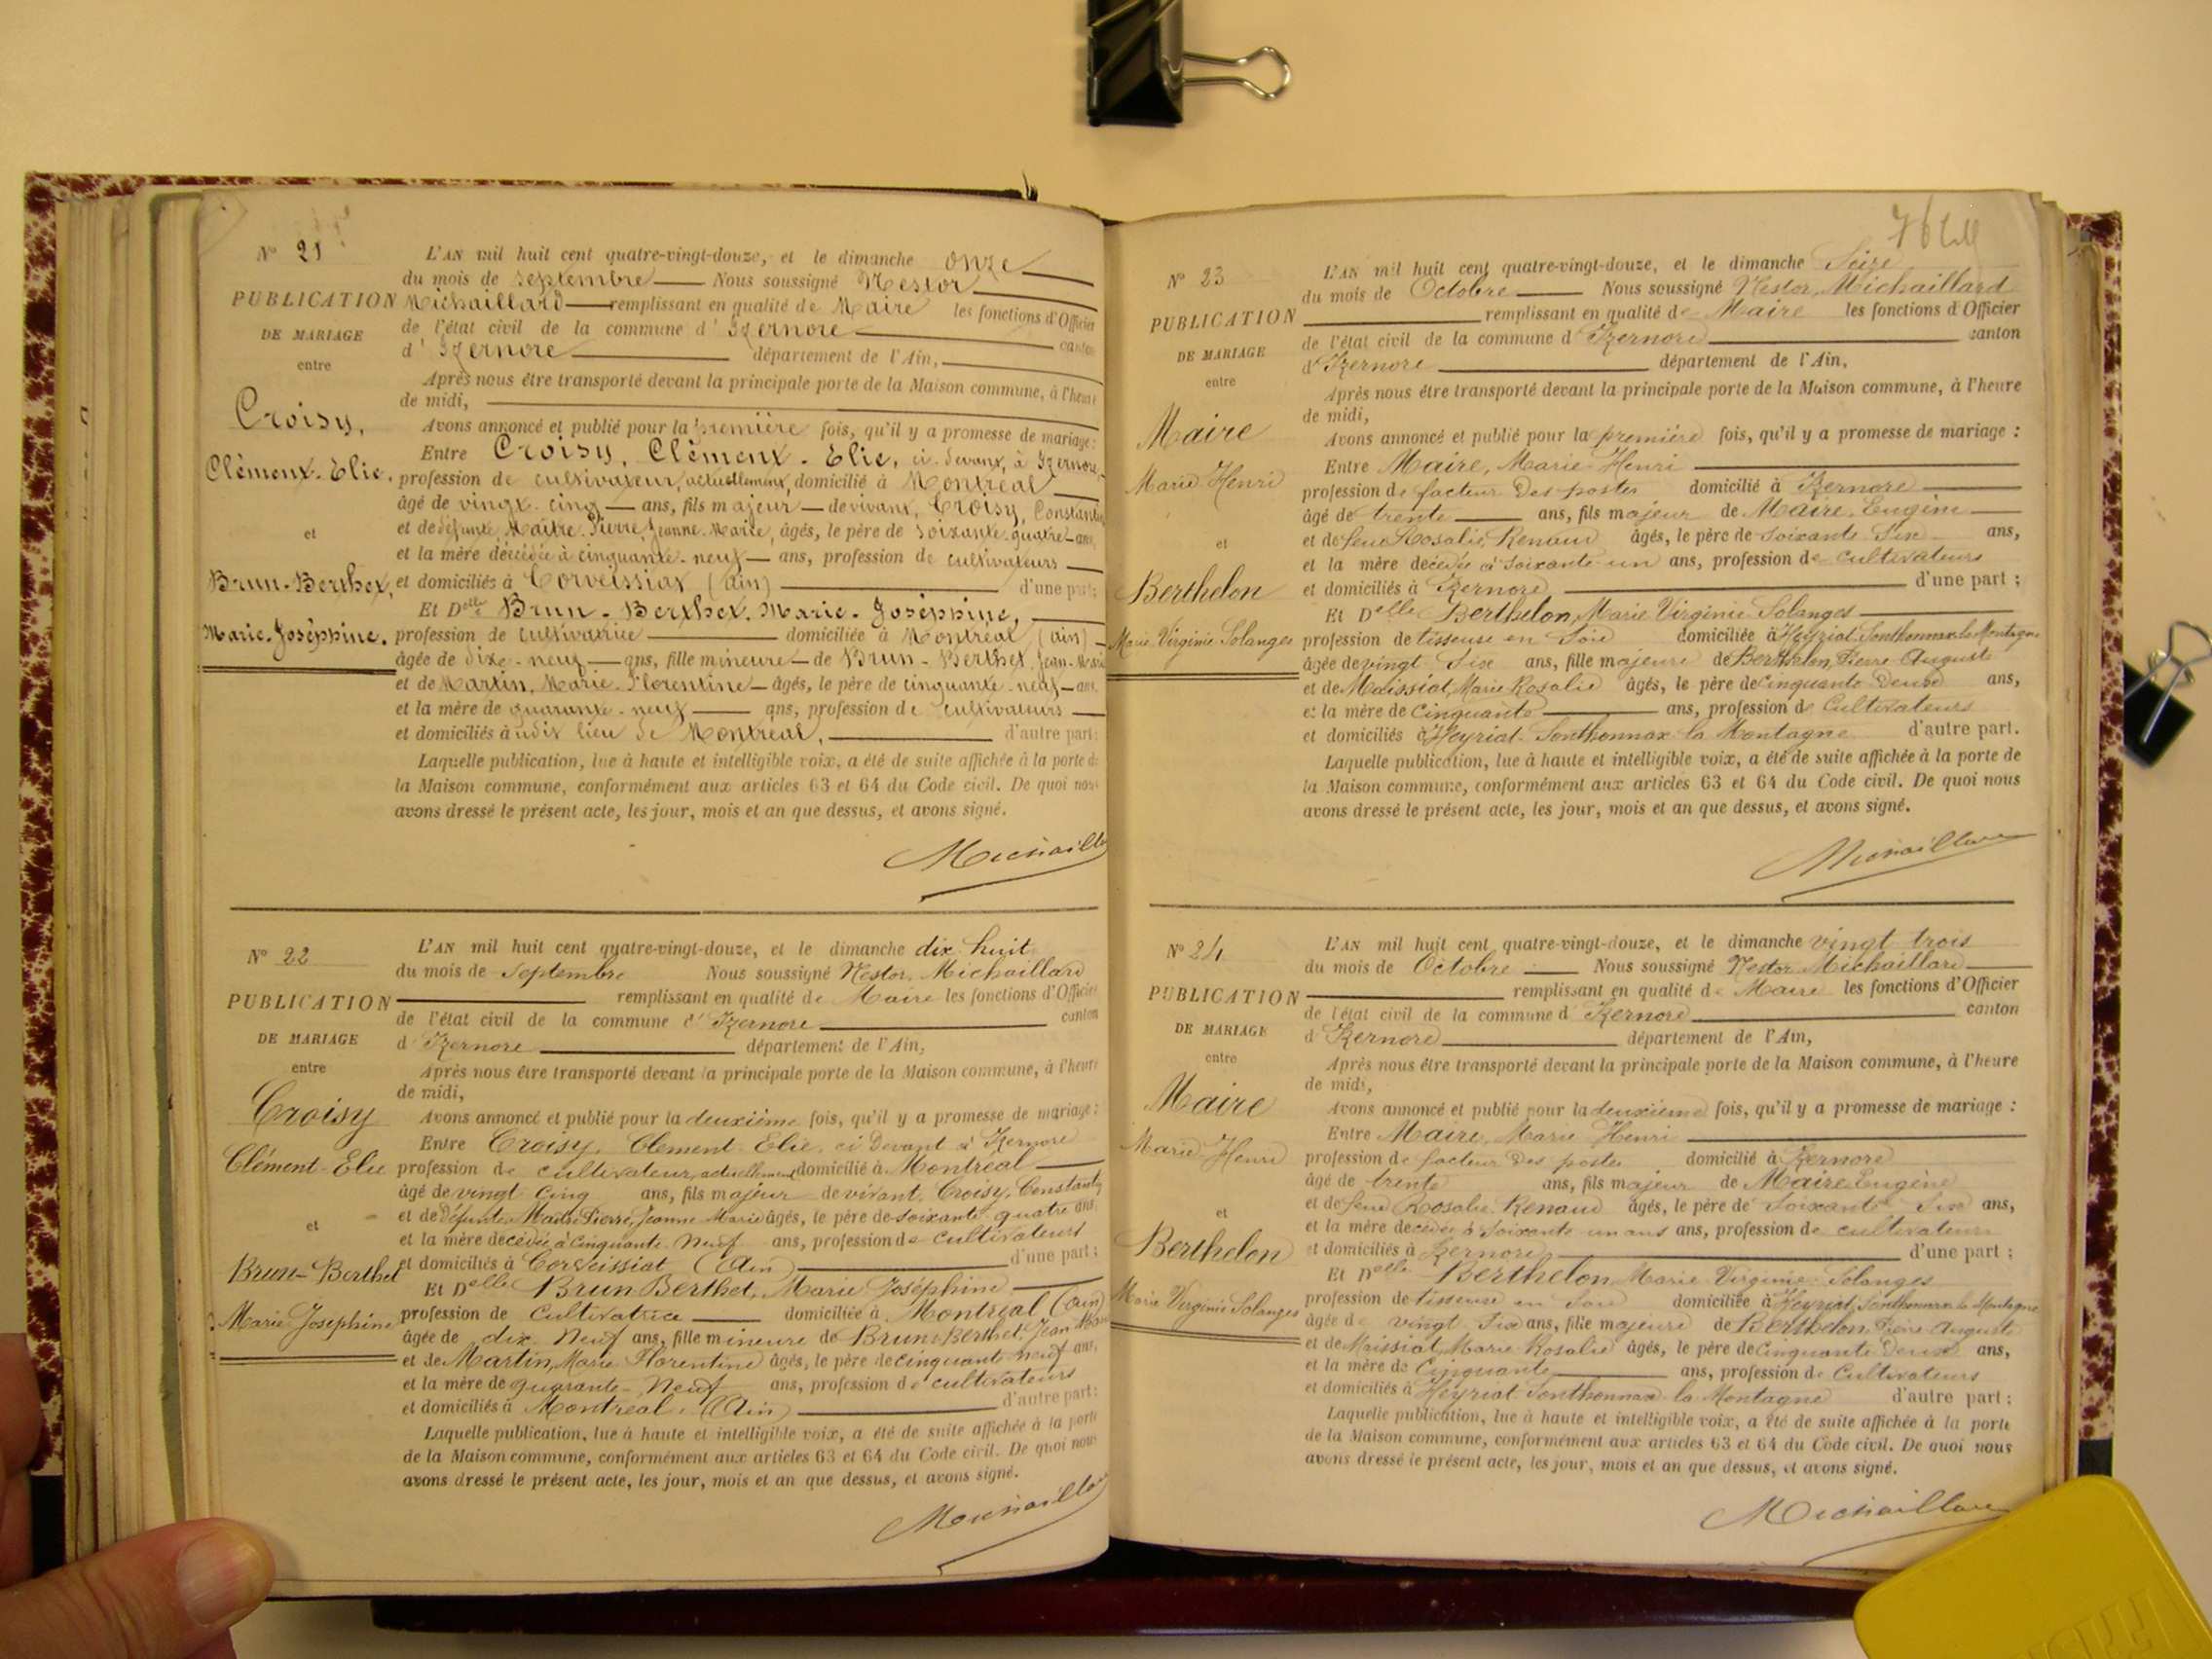 N° 21
PUBLICATION
DE MARIAGE
entre
Croisy,
Clément-Elie.
et
Brun-Berthet,
Marie-Joséphine.
L'AN mil huit cent quatre-vingt-douze, et le dimanche onze
du mois de septembre Nous soussigné Nestor
Michaillard remplissant en qualité de Maire les fonctions d'Officier
de l'état civil de la commune d'Izernore canton
d'Izernore département de l'Ain,
Après nous être transporté devant la principale porte de la Maison commune, à l'heure
de midi,
Avons annoncé et publié pour la première fois, qu'il y a promesse de mariage:
Entre Croisy, Clément-Elie, ci-devant, à Izernore,
profession de cultivateur, actuellement, domicilié à Montréal
âgé de vingt-cinq ans, fils majeur de vivant, Croisy, Constant
et de défunte Maitre-Pierre, Jeanne-Marie, âgés, le père de soixante-quatre ans,
et la mère décédée à cinquante-neuf ans, profession de cultivateurs
et domiciliés à Corveissiat (Ain) d'une part;
Et Delle Brun-Berthet, Marie-Joséphine,
profession de cultivatrice domiciliée à Montréal (ain)
âgée de dixe-neuf ans, fille mineure de Brun-Berthet, Jean-Marie
et de Martin, Marie-Florentine âgés, le père de cinquante-neuf ans,
et la mère de quarante-neuf ans, profession de cultivateurs
et domiciliés à udit lieu de Montréal, d'autre part:
Laquelle publication, lue à haute et intelligible voix, a été de suite affichée à la porte de
la Maison commune, conformément aux articles 63 et 64 du Code civil. De quoi nous
avons dressé le présent acte, les jour, mois et an que dessus, et avons signé.
Michaillard
N° 22
PUBLICATION
DE MARIAGE
entre
Croisy
Clément-Elie
et
Brun-Berthet
Marie Joséphine
L'AN mil huit cent quatre-vingt-douze, et le dimanche dix huit
du mois de Septembre Nous soussigné Nestor, Michaillard
remplissant en qualité de Maire les fonctions d'Officier
de l'état civil de la commune d'Izernore canton
d'Izernore département de l'Ain,
Après nous être transporté devant la principale porte de la Maison commune, à l'heure
de midi,
Avons annoncé et publié pour la deuxième fois, qu'il y a promesse de mariage:
Entre Croisy, Clement-Elie, ci Devant à Izernore
profession de cultivateur, actuellement domicilié à Montréal
âgé de vingt Cinq ans, fils majeur de vivant, Croisy, Constant
et de Défunte Maitre Pierre, Jeanne Marie âgés, le père de soixante-quatre ans,
et la mère decédée à Cinquante-Neuf ans, profession de cultivateurs
et domiciliés à Corveissiat (Ain) d'une part;
Et Delle Brun Berthet, Marie Joséphine
profession de Cultivatrice domiciliée à Montréal (Ain)
âgée de dix-Neuf ans, fille mineure de Brun-Berthet, Jean Marie
et de Martin, Marie Florentine âgés, le père de cinquante-neuf ans,
et la mère de quarante-Neuf ans, profession de cultivateurs
et domiciliés à Montréal, (Ain) d'autre part:
Laquelle publication, lue à haute et intelligible voix, a été de suite affichée à la porte
de la Maison commune, conformément aux articles 63 et 64 du Code civil. De quoi nous
avons dressé le présent acte, les jour, mois et an que dessus, et avons signé.
Michaillard
N° 23
PUBLICATION
DE MARIAGE
entre
Maire
Marie Henri
et
Berthelon
Marie Virginie Solanges
L'AN mil huit cent quatre-vingt-douze, et le dimanche Seize
du mois de Octobre Nous soussigné Nestor, Michaillard
remplissant en qualité de Maire les fonctions d'Officier
de l'état civil de la commune d'Izernore canton
d'Izernore département de l'Ain,
Après nous être transporté devant la principale porte de la Maison commune, à l'heure
de midi,
Avons annoncé et publié pour la première fois, qu'il y a promesse de mariage :
Entre Maire, Marie-Henri
profession de facteur Des postes domicilié à Izernore
âgé de trente ans, fils majeur de Maire, Eugène
et de feue Rosalie, Renaud âgés, le père de Soixante Six ans,
et la mère decédée à Soixante un ans, profession de cultivateurs
et domiciliés à Izernore d'une part ;
Et Delle Berthelon, Marie Virginie Solanges
profession de tisseuse en Soie domiciliée à Heyriat Sonthonnax la Montagne
âgée de vingt Six ans, fille majeure de Berthelon, Pierre Auguste
et de Maissiat, Marie Rosalie âgés, le père de Cinquante Deux ans,
et la mère de Cinquante ans, profession de Cultivateurs
et domiciliés à Heyriat-Sonthonnax la Montagne d'autre part.
Laquelle publication, lue à haute et intelligible voix, a été de suite affichée à la porte de
la Maison commune, conformément aux articles 63 et 64 du Code civil. De quoi nous
avons dressé le présent acte, les jour, mois et an que dessus, et avons signé.
Michaillard
N° 24
PUBLICATION
DE MARIAGE
entre
Maire
Marie Henri
et
Berthelon
Marie Virginie Solanges
L'AN mil huit cent quatre-vingt-douze, et le dimanche vingt trois
du mois de Octobre Nous soussigné Nestor Michaillard
remplissant en qualité de Maire les fonctions d'Officier
de l'état civil de la commune d'Izernore canton
d'Izernore département de l'Ain,
Après nous être transporté devant la principale porte de la Maison commune, à l'heure
de midi,
Avons annoncé et publié pour la deuxième fois, qu'il y a promesse de mariage :
Entre Maire, Marie Henri
profession de facteur Des postes domicilié à Izernore
âgé de trente ans, fils majeur de Maire Eugène
et de feue Rosalie Renaud âgés, le père de Soixante Six ans,
et la mère decédée à Soixante un ans ans, profession de cultivateurs
et domiciliés à Izernore d'une part ;
Et Delle Berthelon, Marie Virginie Solanges
profession de tisseuse en Soie domiciliée à Heyriat, Sonthonnax la Montagne
âgée de vingt Six ans, fille majeure de Berthelon, Pierre Auguste
et de Maissiat, Marie Rosalie âgés, le père de Cinquante Deux ans,
et la mère de Cinquante ans, profession de Cultivateurs
et domiciliés à Heyriat Sonthonnax la Montagne d'autre part ;
Laquelle publication, lue à haute et intelligible voix, a été de suite affichée à la porte
de la Maison commune, conformément aux articles 63 et 64 du Code civil. De quoi nous
avons dressé le présent acte, les jour, mois et an que dessus, et avons signé.
Michaillard